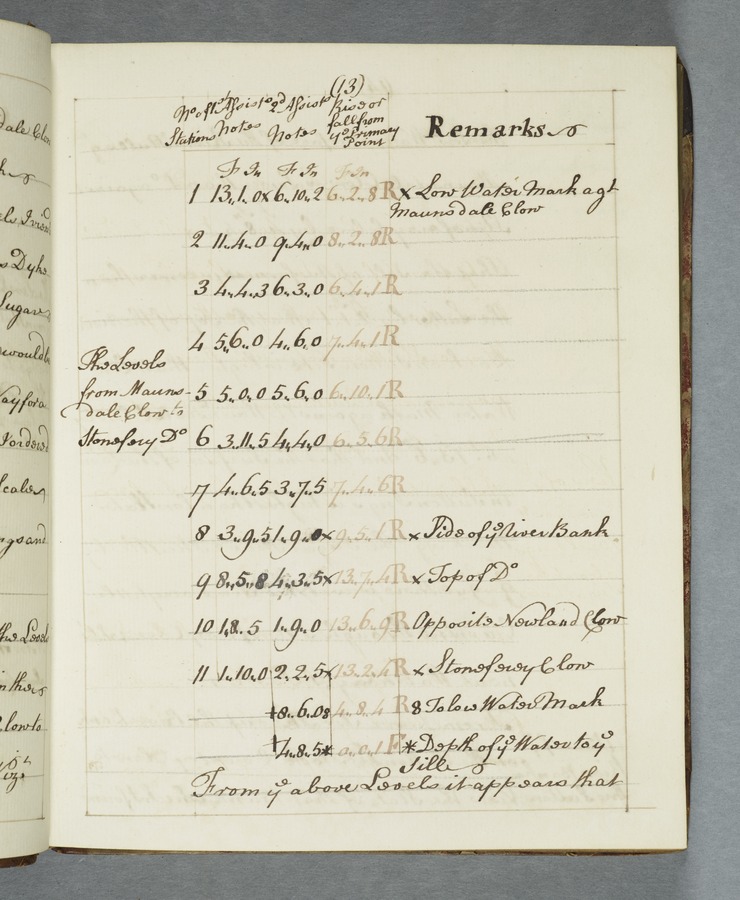 (13)
No of 1st Assists 2d Assists Rise or
Stations Notes Notes fall from
ye Primary
Point
Remarks
F In F In F In
1 13,,1,,0x 6,,10,,2 6,,2,,8 R x Low Water Mark agt
Maunsdale Clow
2 11,,4,,0 9,,4,,0 8,,2,,8 R
3 4,,4,,3 6,,3,,0 6,,4,,1 R
4 5,,6,,0 4,,6,,0 7,,4,,1 R
The Levels
from Mauns-
dale Clow to
Stonefery Do
5 5,,0,,0 5,,6,,0 6,,10,,1 R
6 3,,11,,5 4,,4,,0 6,,5,,6 R
7 4,,6,,5 3,,7,,5 7,,4,,6 R
8 3,,9,,5 1,,9,,0x 9,,5,,1 R x Side of ye River Bank
9 8,,5,,8 4,,3,,5x 13,,7,,4 R x Top of Do
10 1,,8,,5 1,,9,,0 13,,6,,9 R Opposite Newland Clow
11 1,,10,,0 2,,2,,5x 13,,2,,4 R x Stoneferey Clow
+8,,6,,08 4,,8,,4 R 8 To low Water Mark
+4,,8,,5* 0,,0,,1 F * Depth of ye Water to ye
Sille
From ye above Levels it appears that
dale Clow
s Dyke
Sugar
would
way for a
I ordered
Scale
ngs and
the Levels
in the
Clow to